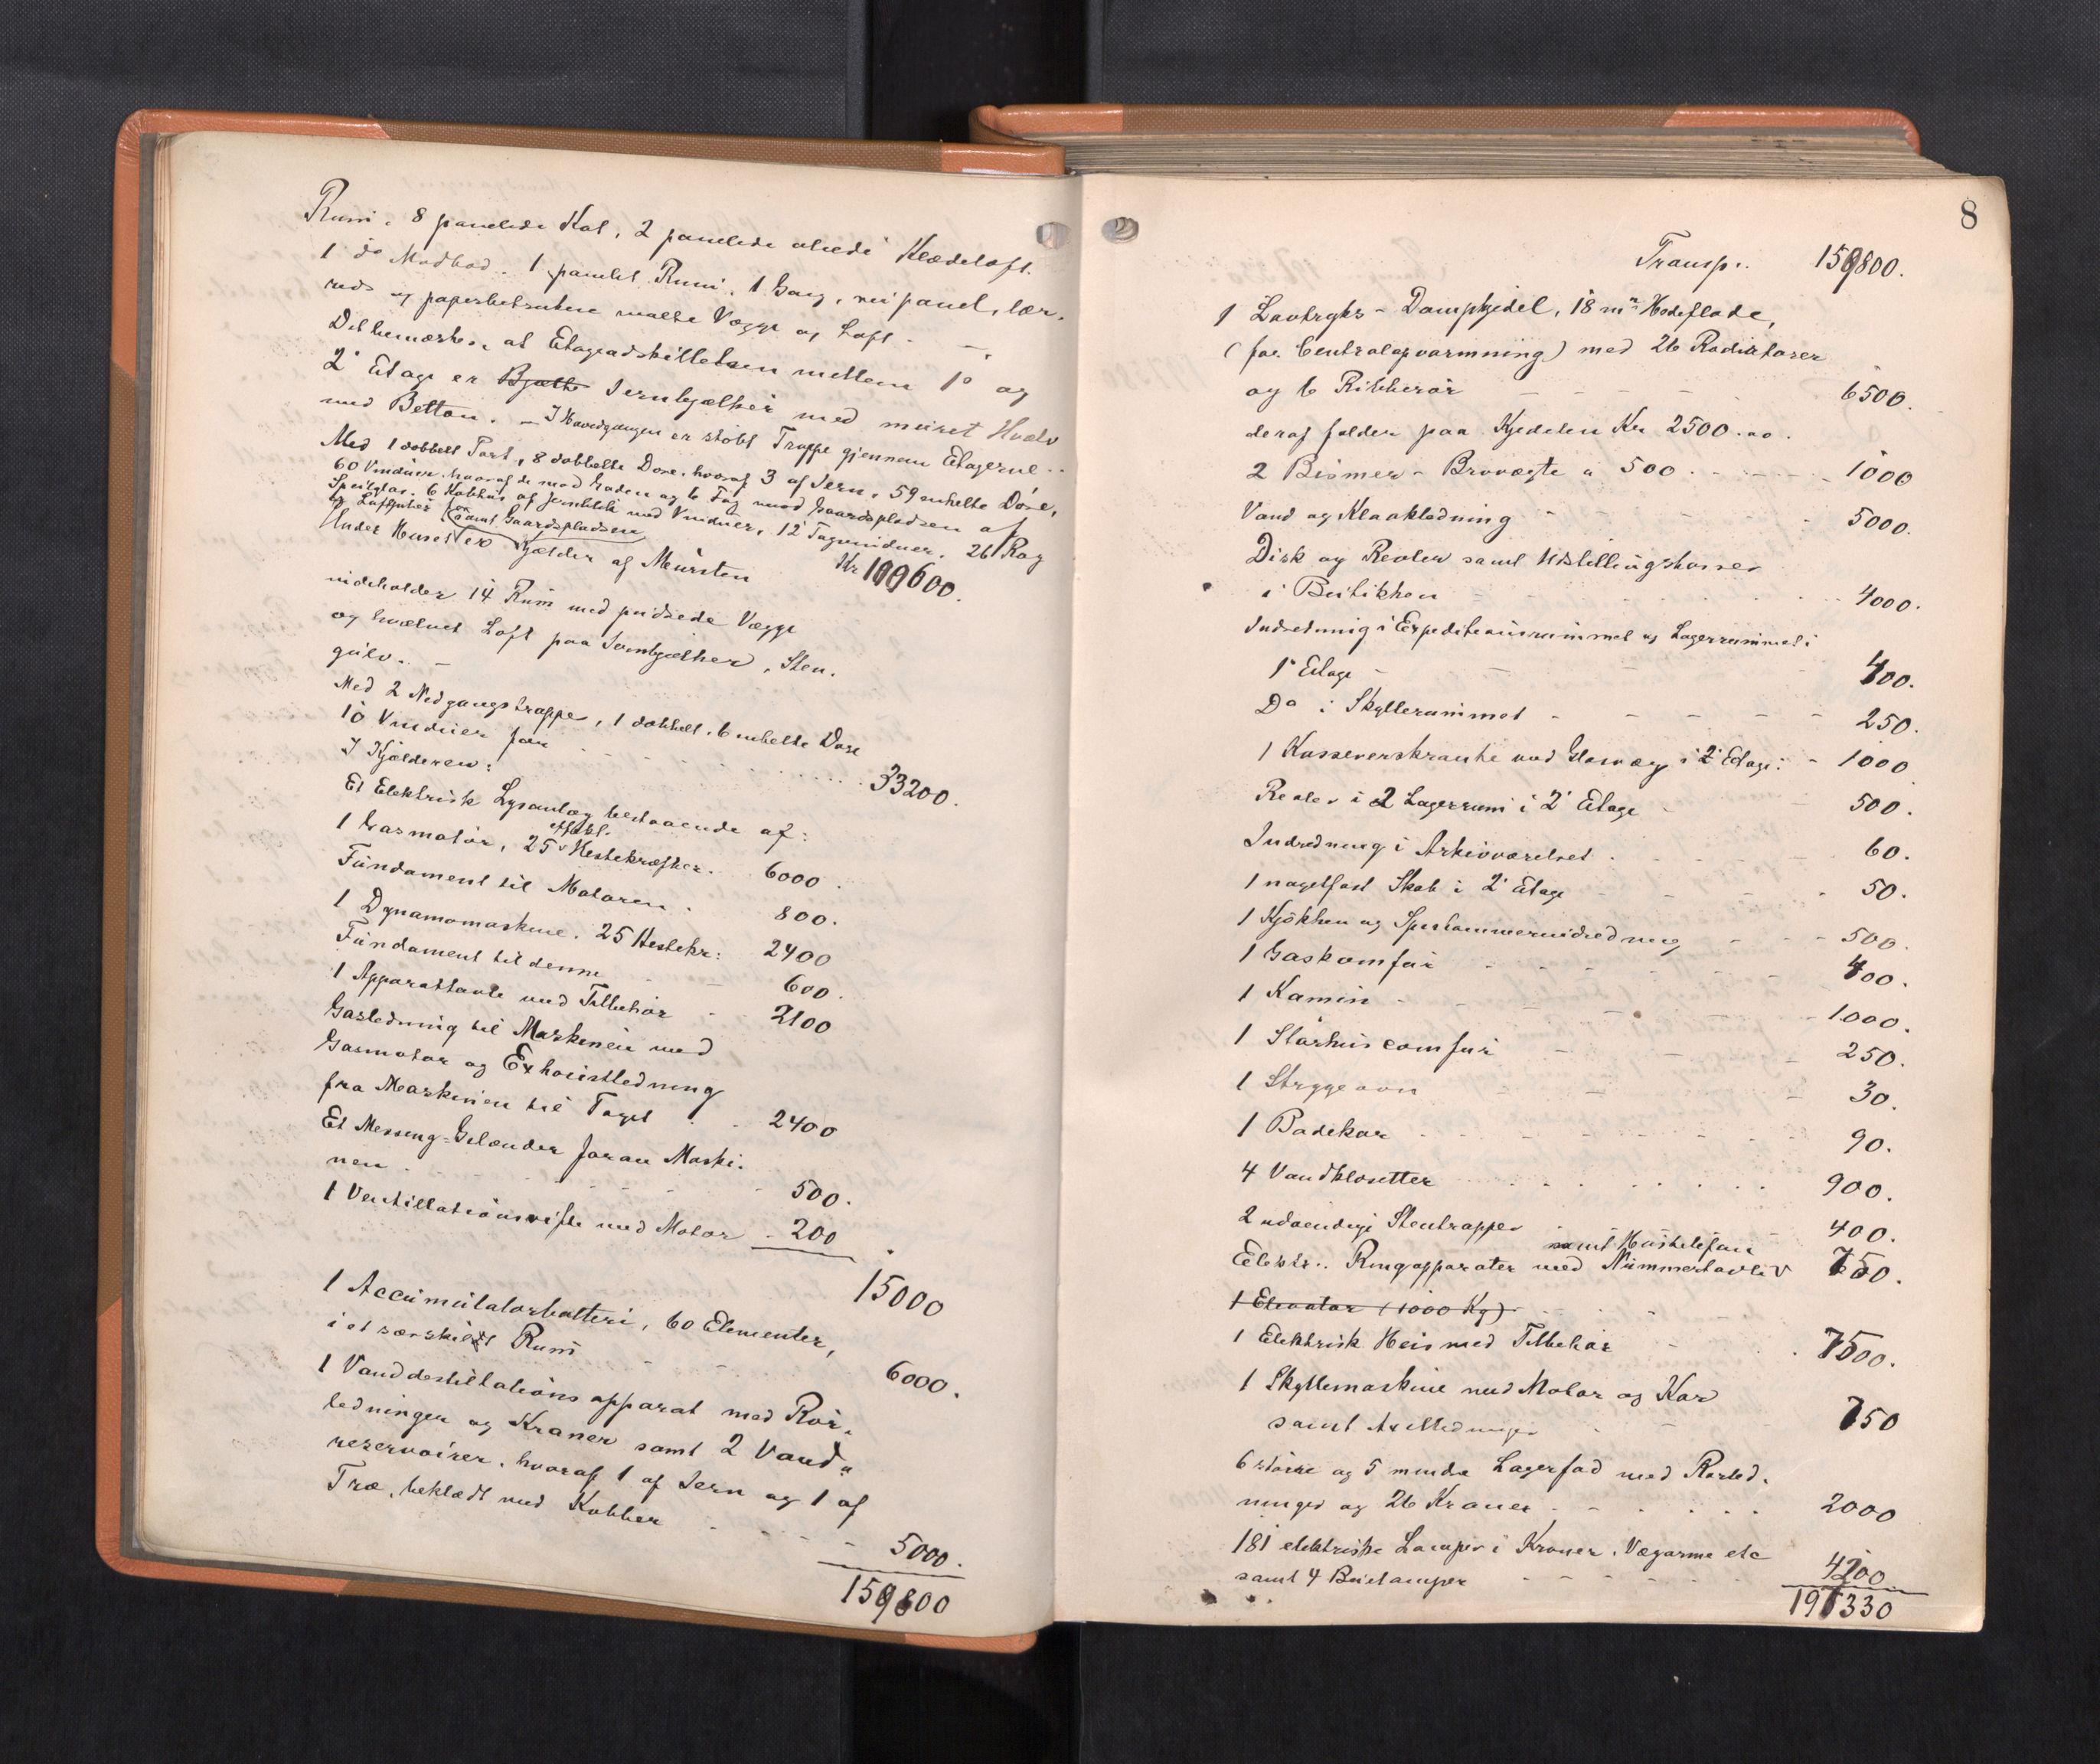 Rum. 8 panelede Kot, 2 panelede atredé Klædeloft.
1 do Madbod. 1 panelet Rum. 1 Gang, nei panel, lær.
reds og papirbetrukne malte Vægge og Loft. —
Det bemærkes at Etageadskillelsen mellem 1e og
2' Etage er Bjælke Jernbjelker med muret Hvælv
med Betton. — I Hovedgangen er støbt Trappe gjennem Etagerne..
Med 1 dobbelt Port, 8 dobbelte Døre, hvoraf 3 af Jern, 59 enkelte Døre,
60 Vinduer, hvoraf de mod Gaden og 6 Fag mod Gaardspladsen af
Speilglas. 6 Kobhus af Jernblik med Vinduer, 12 Tagvinduer. 26 Røg
og Luftpiber
samt Gaardspladsen
Kr 109600.
Under Huset er Kjælder af Mursten
indeholder 14 Rum med pudsede Vægge
og hvælvet Loft paa Jernbjelker, Sten.
gulv. —
Med 2 Nedgangstrappe, 1 dobbelt, 6 enkelte Døre
10 Vinduer for 33200.
I Kjælderen:
Et Elektrisk Lysanlæg bestaaende af:
effekt.
1 Gasmotor, 25 Hestekræfter. 6000.
Fundament til Motoren. 800.
1 Dynamomaskine. 25 Hestekr: 2400
Fundament til denne 600.
1 Apparattavle med Tilbehør 2100
Gasledning til Maskinen med
Gasmotor og Exhoustledning
fra Maskinen til Taget 2400
Et Messing-Gelænder foran Maski-
nen 500.
1 Ventillationsvifte med Motor - 200
15000
1 Accumulatorbatteri, 60 Elementer,
i et særskildt Rum 6000.
1 Vanddestillationsapparat med Rør-
ledninger og Kraner samt 2 Vand-
reservoirer, hvoraf 1 af Jern og 1 af
Træ, beklædt med Kobber 5000.
159800
8
Transp.. 159800.
1 Lavtryks-Dampkjedel, 18 m² Hedeflade,
(for Centralopvarmning) med 26 Radiatorer
og 6 Ribberør 6500.
deraf falder paa Kjedelen Kr 2500.00.
2 Bismer-Brovægte a 500 1000
Vand og Kloakledning 5000.
Disk og Reoler samt Udstillingskasser
i Butikken 4000.
Indredning i Expeditionsrummet og Lagerrummet i
1' Etage 400.
Do i Skyllerummet 250.
1 Kasseverskranke med Glasvæg i 2' Etage: 1000
Reoler i 2 Lagerrum i 2' Etage 500.
Indredning i Arkivværelset 60.
1 nagelfast Skab i 2' Etage 50.
1 Kjøkken og Spiskammerindredning 500.
1 Gaskomfur 400.
1 Kamin 1000.
1 Storhuscomfur 250.
1 Strygeovn 30.
1 Badekar 90.
4 Vandklosetter 900.
2 udvendige Stentrapper 400.
samt Hustelefon
Elektr. Ringapparater med Nummertavler 750.
1 Elevator (1000 Kg)
1 Elektrisk Heis med Tilbehør 7500.
1 Skyllemaskine med Motor og Kar
samt Axelledninger 750
6 større og 5 mindre Lagerfad med Rørled-
ninger og 26 Kraner 2000
181 elektriske Lamper i Kroner, Vægarme etc
samt 4 Buelamper 4200
197330